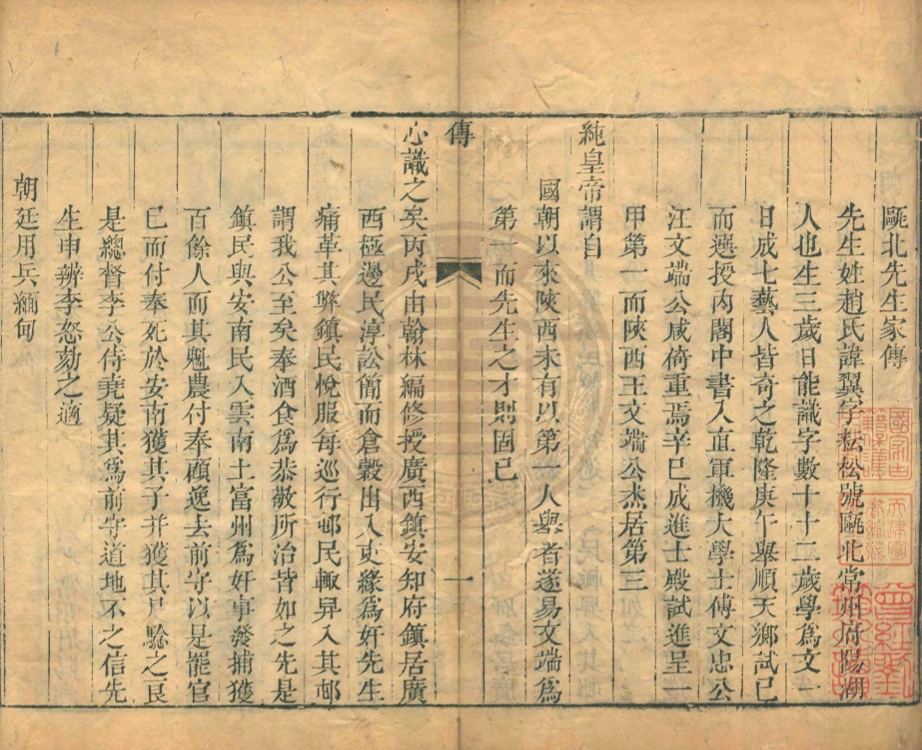 甌北先生家傳
先生姓趙氏諱翼字耘松號甌北常州府陽湖
人也生三歲日能識字數十十二歲學爲文一
日成七藝人皆奇之乾隆庚午舉順天鄉試已
而選授內閣中書入直軍機大學士傅文忠公
江文端公咸倚重焉辛巳成進士殿試進呈一
甲第一而陝西王文端公杰居第三
純皇帝謂自
國朝以來陝西未有以第一人舉者遂易文端爲
第一而先生之才則固已
傳
一
心識之矣丙戌由翰林編修授廣西鎮安知府鎮居廣
西極邊民淳訟簡而倉穀出入吏緣爲奸先生
痛革其弊鎮民悅服每巡行邨民輙舁入其邨
謂我公至矣奉酒食爲恭敬所治皆如之先是
鎮民與安南民入雲南土富州爲奸事發捕獲
百餘人而其魁農付奉顧逸去前守以是罷官
已而付奉死於安南獲其子并獲其尸驗之良
是總督李公侍堯疑其爲前守道地不之信先
生申辨李怒劾之適
朝廷用兵緬甸